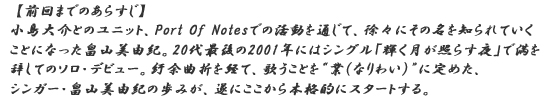 【前回までのあらすじ】
小島大介とのユニット、Port Of Notesでの活動を通じて、徐々にその名を知られていく
ことになった畠山美由紀。20代最後の2001年にはシングル「輝く月が照らす夜」で満を
辞してのソロ・デビュー。紆余曲折を経て、歌うことを“業(なりわい)”に定めた、
シンガー・畠山美由紀の歩みが、遂にここから本格的にスタートする。